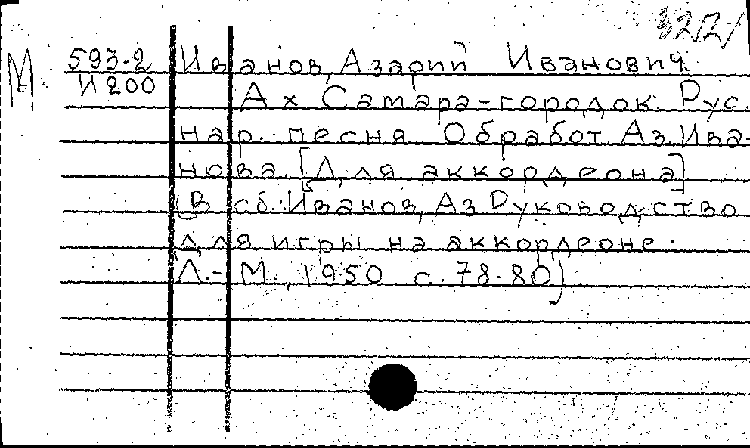 М 593-2 Иванов, Азарий Иванович.
И 200 Ах Самара-городок. Рус.
нар. песня Обработ. Аз. Ива-
нова. [Для аккордеона]
(В сб.: Иванов, Аз Руководство
для игры на аккордеоне.
Л.-М., 1950 с. 78-80)